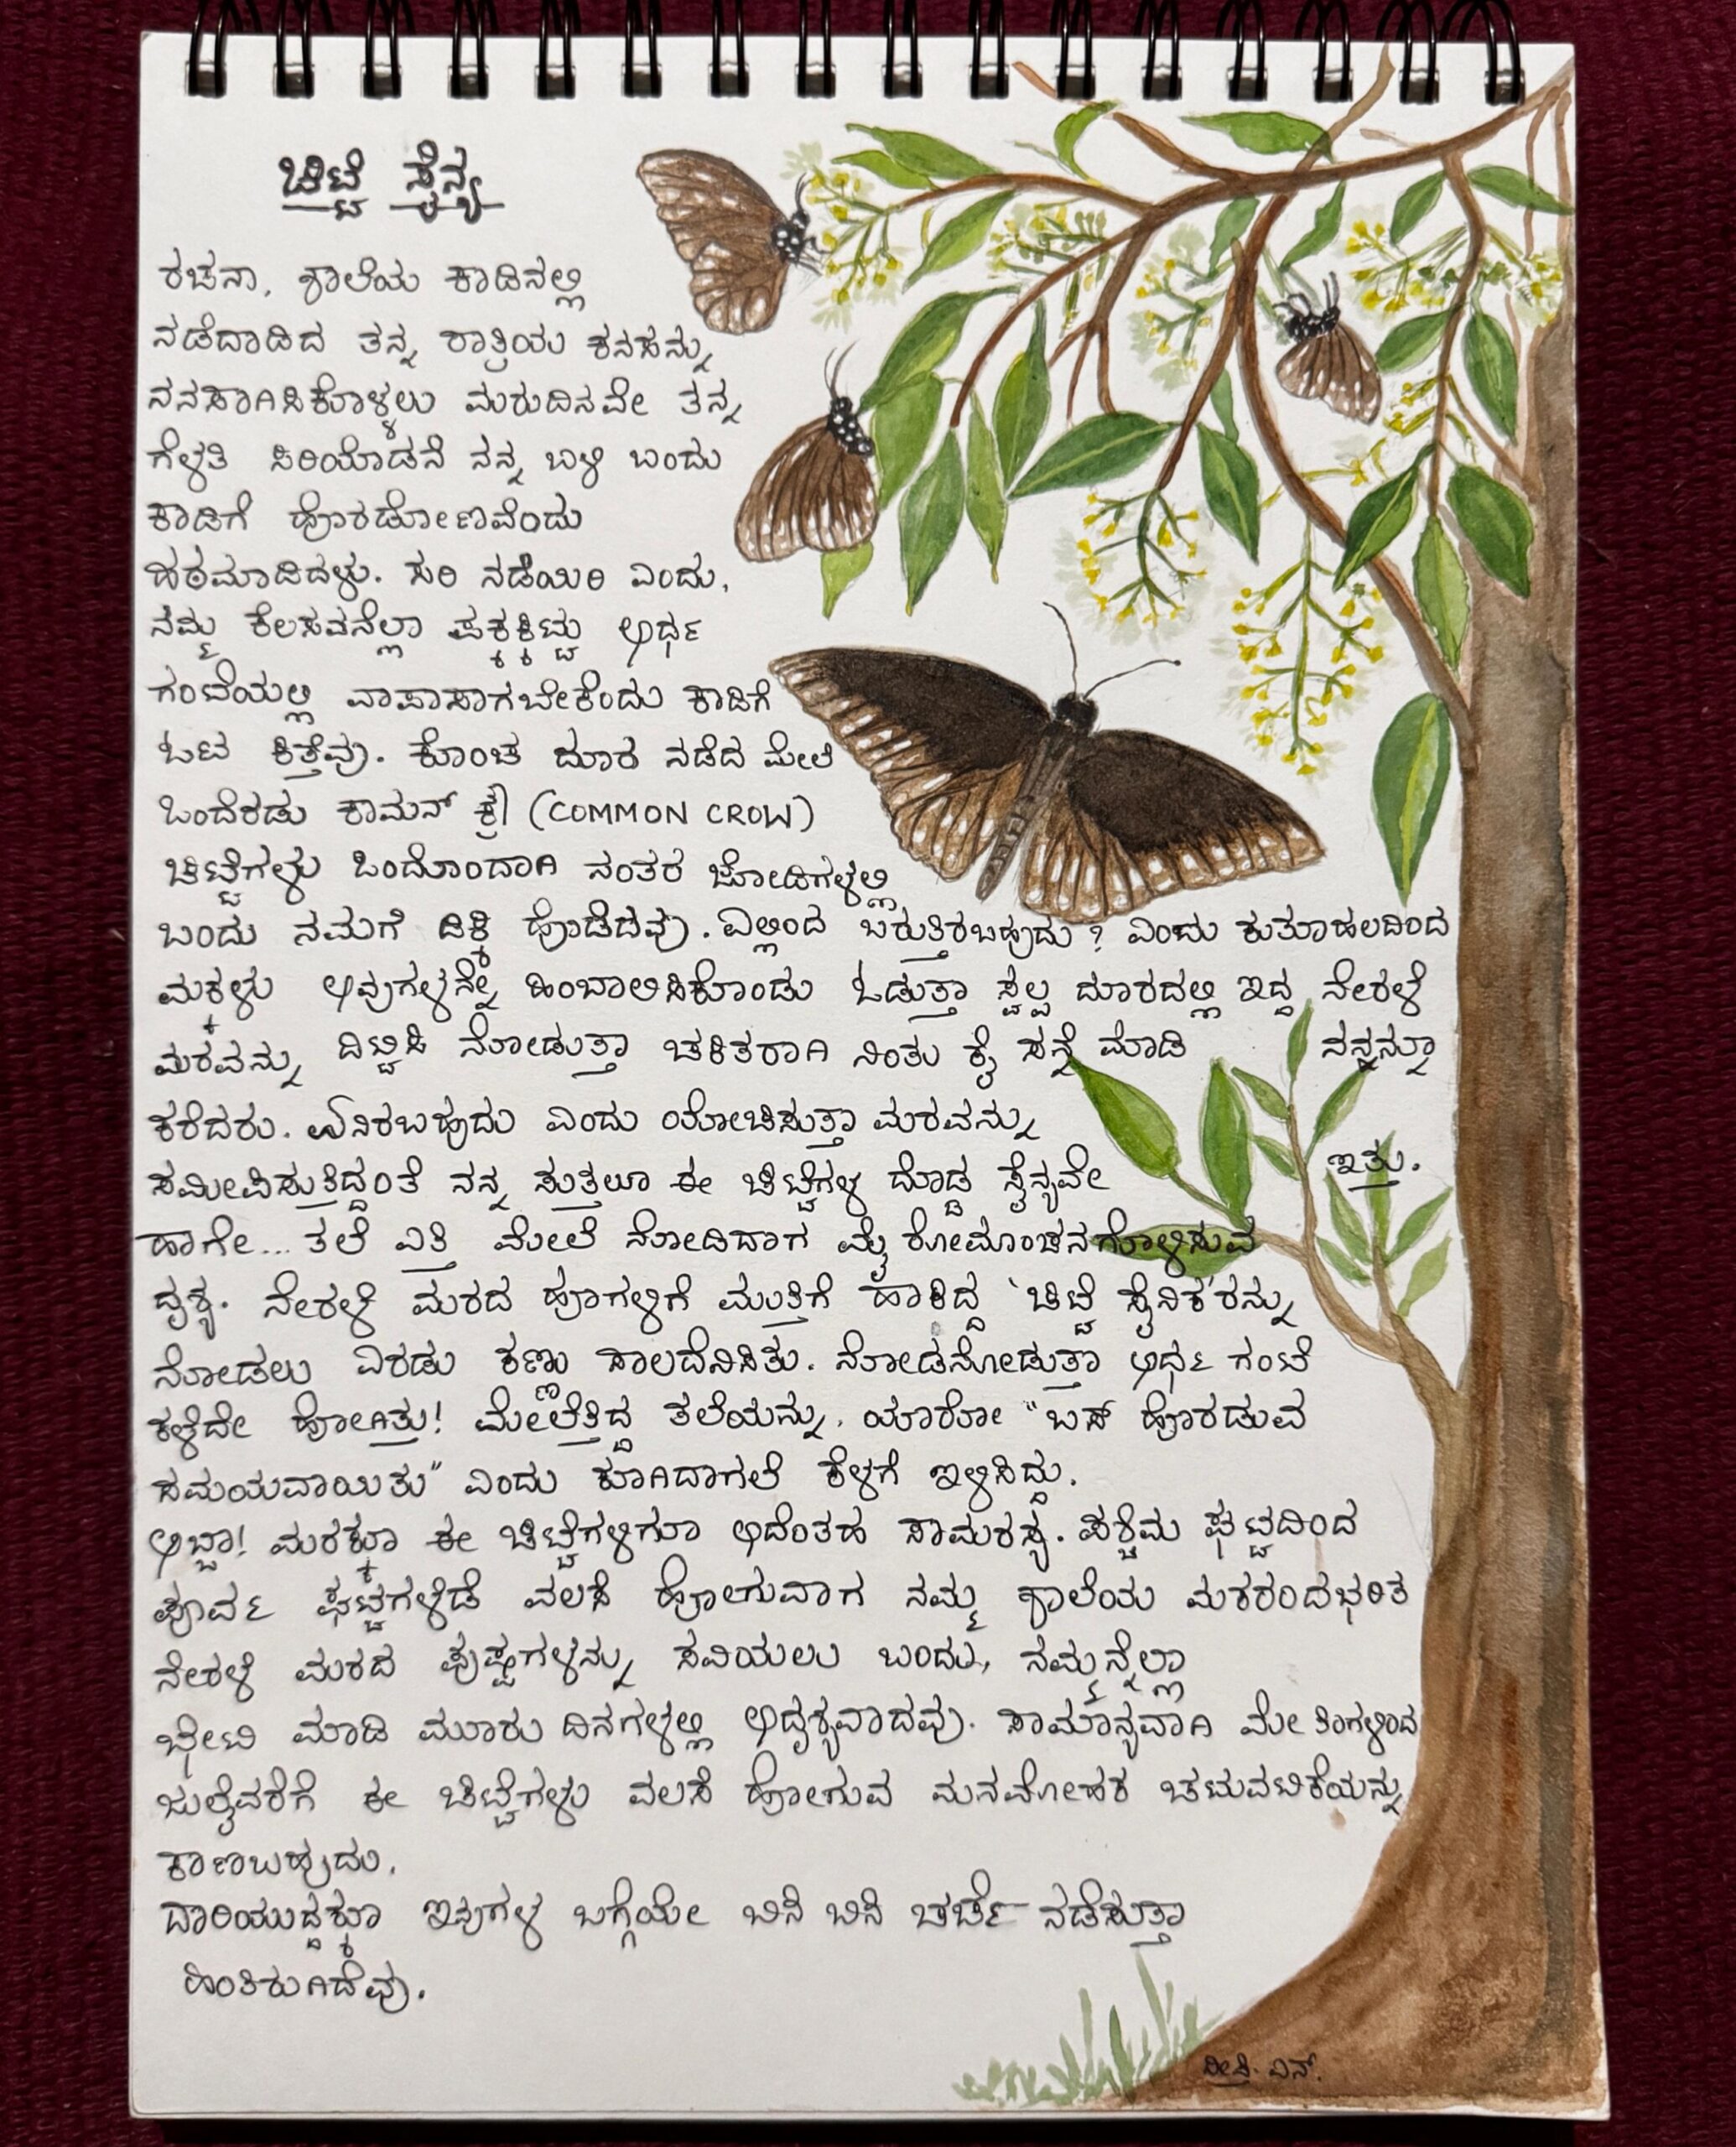 ಚಿಟ್ಟೆ ಸೈನ್ಯ
ರಚನಾ, ಶಾಲೆಯ ಕಾಡಿನಲ್ಲಿ
ನಡೆದಾಡಿದ ತನ್ನ ರಾತ್ರಿಯ ಕನಸನ್ನು
ನನಸಾಗಿಸಿಕೊಳ್ಳಲು ಮರುದಿನವೇ ತನ್ನ
ಗೆಳತಿ ಸಿರಿಯೊಡನೆ ನನ್ನ ಬಳಿ ಬಂದು
ಕಾಡಿಗೆ ಹೊರಡೋಣವೆಂದು
ಹಠಮಾಡಿದಳು. ಸರಿ ನಡೆಯಿರಿ ಎಂದು,
ನಮ್ಮ ಕೆಲಸವನೆಲ್ಲಾ ಪಕ್ಕಕ್ಕಿಟ್ಟು ಅರ್ಧ
ಗಂಟೆಯಲ್ಲಿ ವಾಪಾಸಾಗಬೇಕೆಂದು ಕಾಡಿಗೆ
ಓಟ ಕಿತ್ತೆವು. ಕೊಂಚ ದೂರ ನಡೆದ ಮೇಲೆ
ಒಂದೆರಡು ಕಾಮನ್ ಕ್ರೌ (COMMON CROW)
ಚಿಟ್ಟೆಗಳು ಒಂದೊಂದಾಗಿ ನಂತರ ಜೋಡಿಗಳಲ್ಲಿ
ಬಂದು ನಮಗೆ ಡಿಕ್ಕಿ ಹೊಡೆದವು. ಎಲ್ಲಿಂದ ಬರುತ್ತಿರಬಹುದು? ಎಂದು ಕುತೂಹಲದಿಂದ
ಮಕ್ಕಳು ಅವುಗಳನ್ನೇ ಹಿಂಬಾಲಿಸಿಕೊಂಡು ಓಡುತ್ತಾ ಸ್ವಲ್ಪ ದೂರದಲ್ಲಿ ಇದ್ದ ನೇರಳೆ
ಮರವನ್ನು ದಿಟ್ಟಿಸಿ ನೋಡುತ್ತಾ ಚಕಿತರಾಗಿ ನಿಂತು ಕೈ ಸನ್ನೆ ಮಾಡಿ ನನ್ನನ್ನೂ
ಕರೆದರು. ಏನಿರಬಹುದು ಎಂದು ಯೋಚಿಸುತ್ತಾ ಮರವನ್ನು
ಸಮೀಪಿಸುತ್ತಿದ್ದಂತೆ ನನ್ನ ಸುತ್ತಲೂ ಈ ಚಿಟ್ಟೆಗಳ ದೊಡ್ಡ ಸೈನ್ಯವೇ ಇತ್ತು.
ಹಾಗೇ... ತಲೆ ಎತ್ತಿ ಮೇಲೆ ನೋಡಿದಾಗ ಮೈ ರೋಮಾಂಚನಗೊಳಿಸುವ
ದೃಶ್ಯ. ನೇರಳೆ ಮರದ ಹೂಗಳಿಗೆ ಮುತ್ತಿಗೆ ಹಾಕಿದ್ದ 'ಚಿಟ್ಟೆ ಸೈನಿಕ'ರನ್ನು
ನೋಡಲು ಎರಡು ಕಣ್ಣು ಸಾಲದೆನಿಸಿತು. ನೋಡನೋಡುತ್ತಾ ಅರ್ಧ ಗಂಟೆ
ಕಳೆದೇ ಹೋಗಿತ್ತು! ಮೇಲೆತ್ತಿದ್ದ ತಲೆಯನ್ನು, ಯಾರೋ "ಬಸ್ ಹೊರಡುವ
ಸಮಯವಾಯಿತು" ಎಂದು ಕೂಗಿದಾಗಲೆ ಕೆಳಗೆ ಇಳಿಸಿದ್ದು.
ಅಬ್ಬಾ! ಮರಕ್ಕೂ ಈ ಚಿಟ್ಟೆಗಳಿಗೂ ಅದೆಂತಹ ಸಾಮರಸ್ಯ. ಪಶ್ಚಿಮ ಘಟ್ಟದಿಂದ
ಪೂರ್ವ ಘಟ್ಟಗಳೆಡೆ ವಲಸೆ ಹೋಗುವಾಗ ನಮ್ಮ ಶಾಲೆಯ ಮಕರಂದಭರಿತ
ನೇರಳೆ ಮರದ ಪುಷ್ಪಗಳನ್ನು ಸವಿಯಲು ಬಂದು, ನಮ್ಮನ್ನೆಲ್ಲಾ
ಭೇಟಿ ಮಾಡಿ ಮೂರು ದಿನಗಳಲ್ಲಿ ಅದೃಶ್ಯವಾದವು. ಸಾಮಾನ್ಯವಾಗಿ ಮೇ ತಿಂಗಳಿಂದ
ಜುಲೈವರೆಗೆ ಈ ಚಿಟ್ಟೆಗಳು ವಲಸೆ ಹೋಗುವ ಮನಮೋಹಕ ಚಟುವಟಿಕೆಯನ್ನು
ಕಾಣಬಹುದು.
ದಾರಿಯುದ್ದಕ್ಕೂ ಇವುಗಳ ಬಗ್ಗೆಯೇ ಬಿಸಿ ಬಿಸಿ ಚರ್ಚೆ ನಡೆಸುತ್ತಾ
ಹಿಂತಿರುಗಿದೆವು.
ಎನ್.